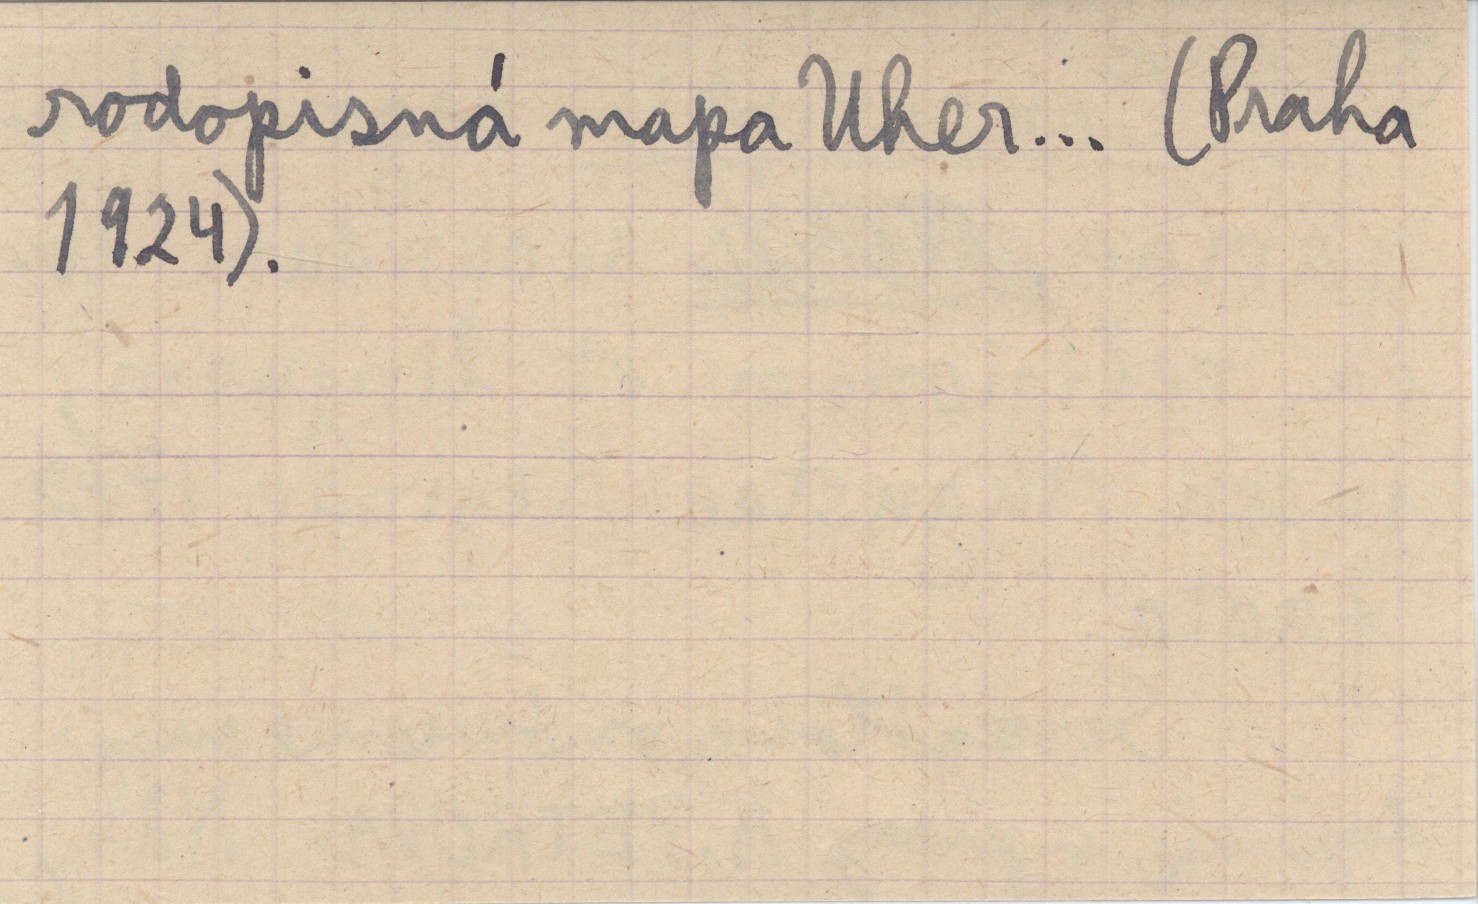 rodopisná mapa Uher... (Praha
1924).